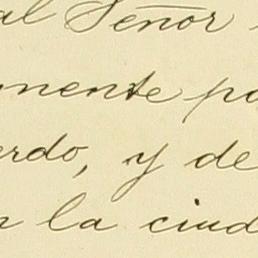 al Señor
mente pa
erdo, y de
n la ciud